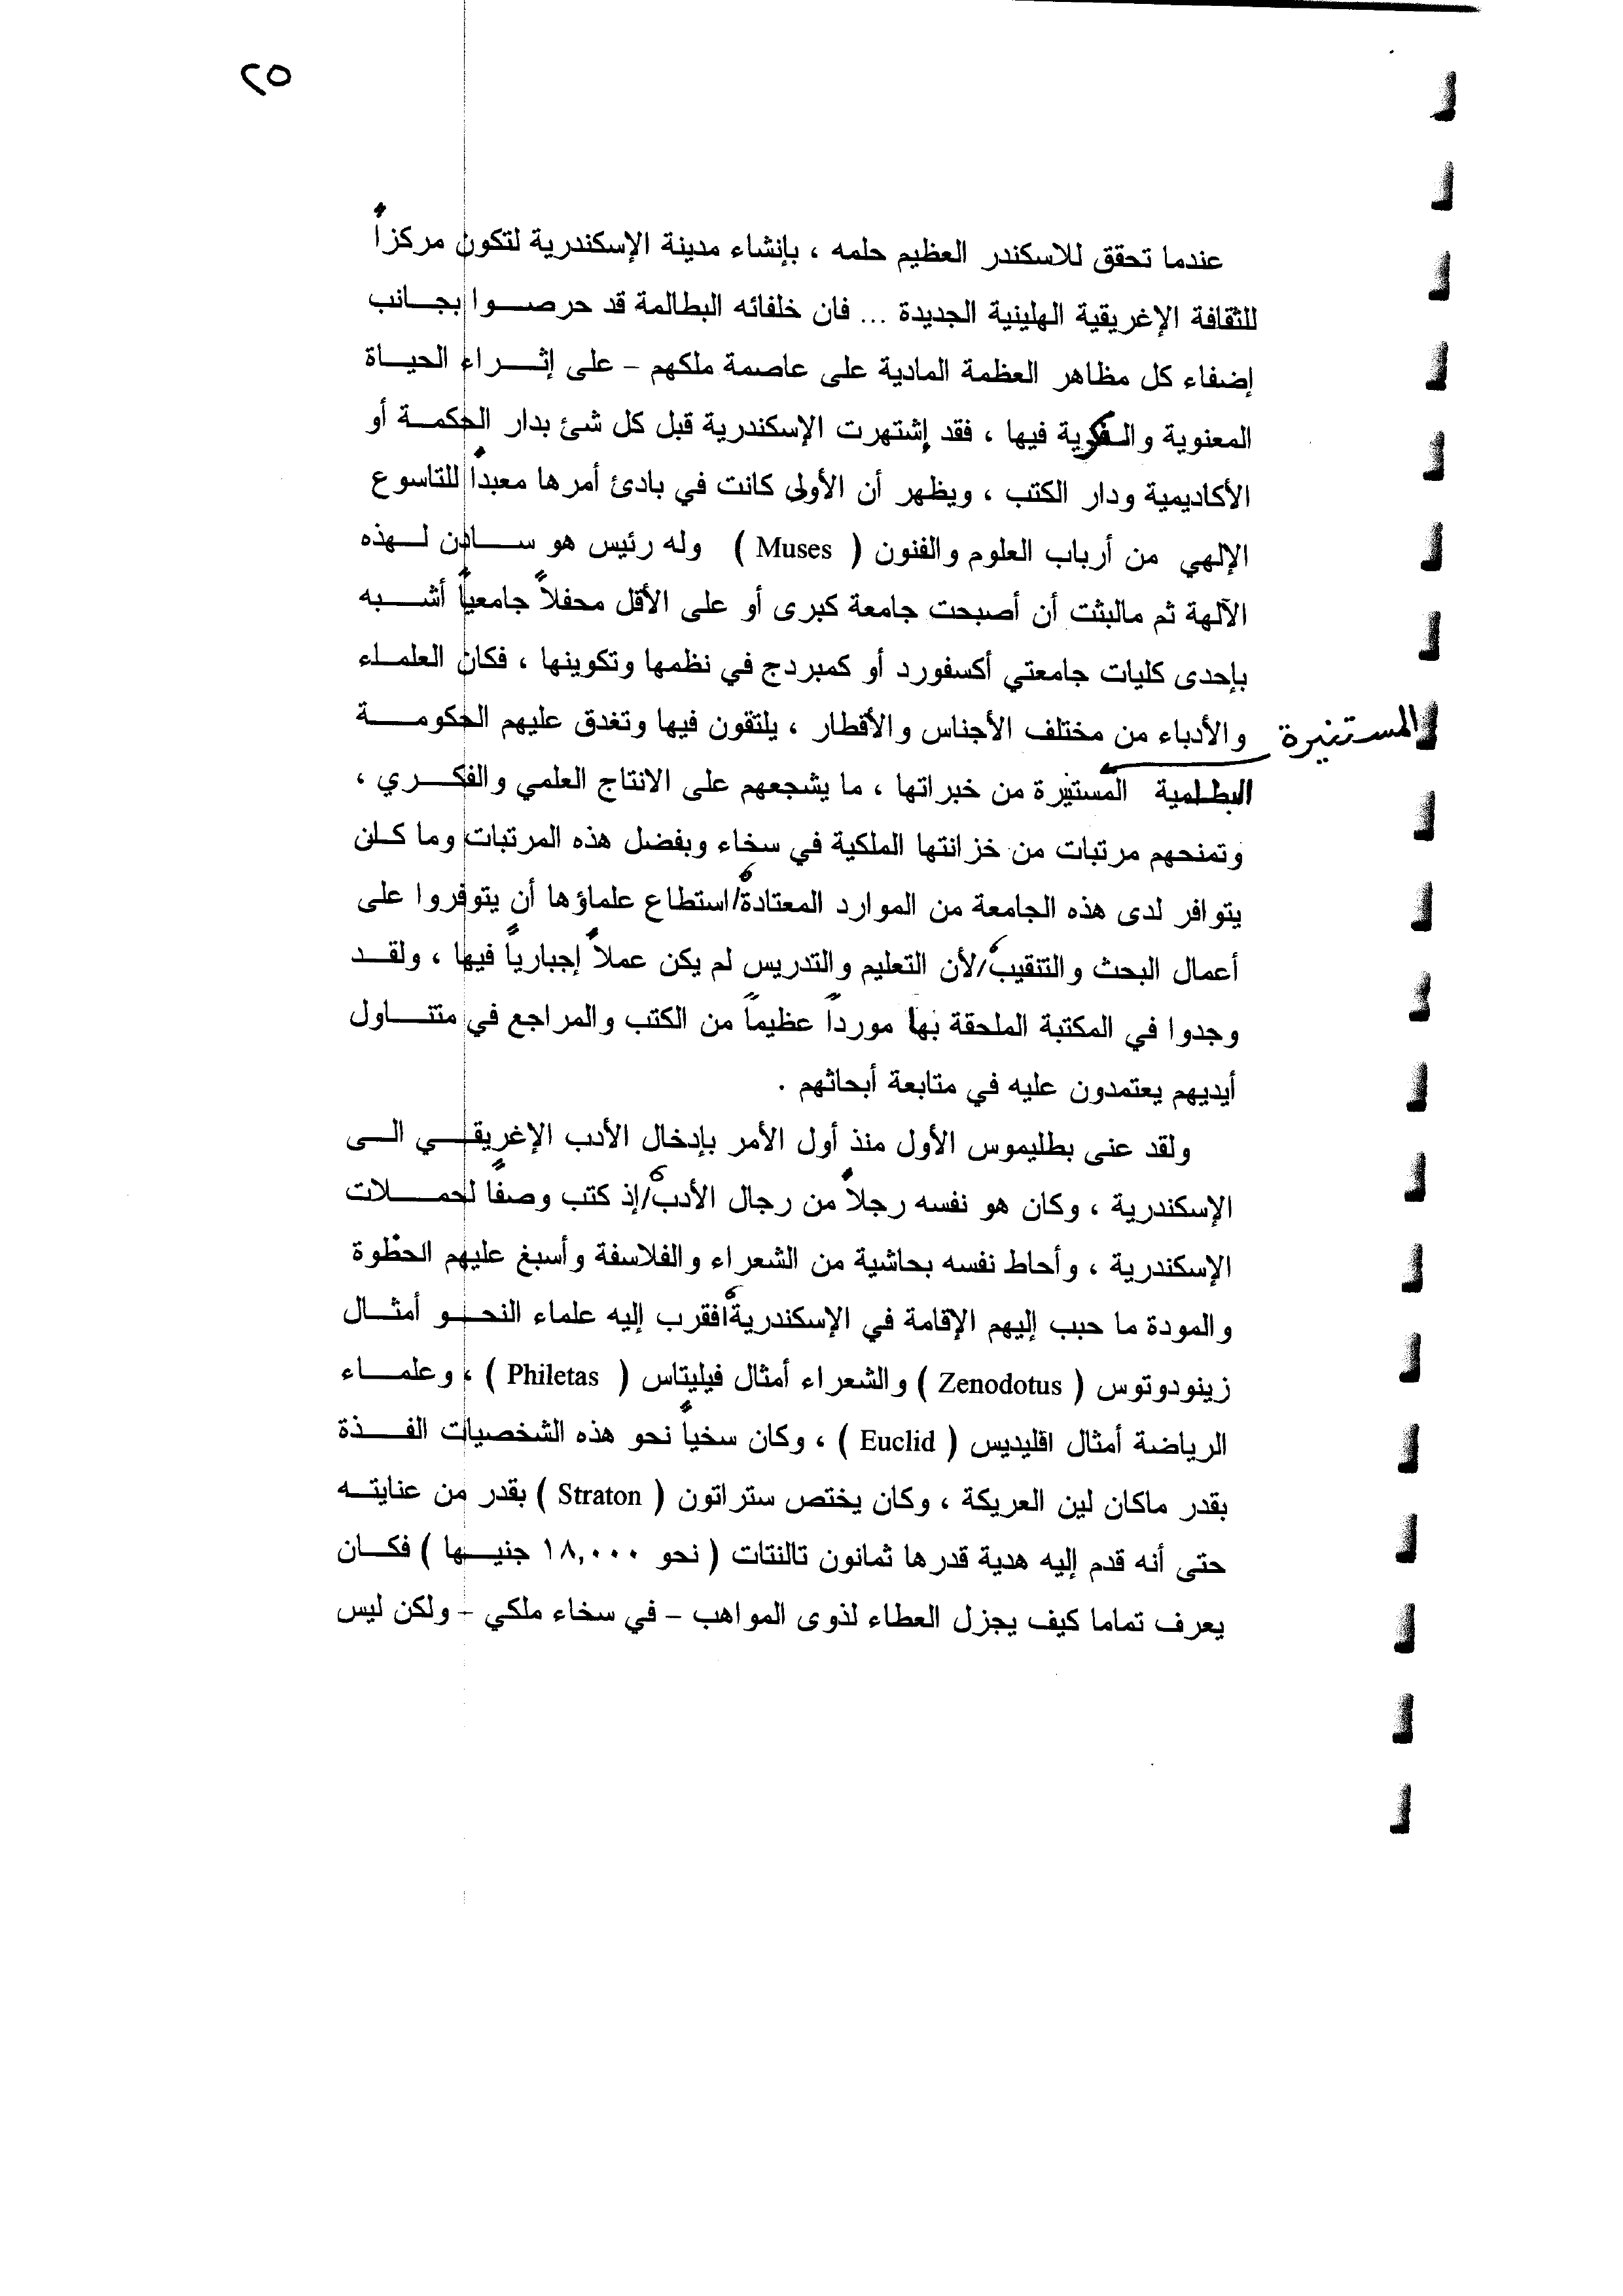 ٢٥
عندما تحقق للاسكندر العظيم حلمه ، بإنشاء مدينة الإسكندرية لتكون مركزاً
للثقافة الإغريقية الهلينية الجديدة ... فان خلفائه البطالمة قد حرصوا بجانب
إضفاء كل مظاهر العظمة المادية على عاصمة ملكهم – على إثراء الحياة
المعنوية والفكرية فيها ، فقد إشتهرت الإسكندرية قبل كل شئ بدار الحكمة أو
الأكاديمية ودار الكتب ، ويظهر أن الأولى كانت في بادئ أمرها معبداً للتاسوع
الإلهي من أرباب العلوم والفنون ( Muses ) وله رئيس هو سادن لهذه
الآلهة ثم مالبثت أن أصبحت جامعة كبرى أو على الأقل محفلاً جامعياً أشبه
بإحدى كليات جامعتي أكسفورد أو كمبردج في نظمها وتكوينها ، فكان العلماء
والأدباء من مختلف الأجناس والأقطار ، يلتقون فيها وتغدق عليهم الحكومة
المستنيرة
البطلمية المستنيرة من خبراتها ، ما يشجعهم على الانتاج العلمي والفكري ،
وتمنحهم مرتبات من خزانتها الملكية في سخاء وبفضل هذه المرتبات وما كان
يتوافر لدى هذه الجامعة من الموارد المعتادة، استطاع علماؤها أن يتوفروا على
أعمال البحث والتنقيب، لأن التعليم والتدريس لم يكن عملاً إجبارياً فيها ، ولقد
وجدوا في المكتبة الملحقة بها مورداً عظيماً من الكتب والمراجع في متناول
أيديهم يعتمدون عليه في متابعة أبحاثهم .
ولقد عنى بطليموس الأول منذ أول الأمر بإدخال الأدب الإغريقي الى
الإسكندرية ، وكان هو نفسه رجلاً من رجال الأدب، إذ كتب وصفاً لحملات
الإسكندرية ، وأحاط نفسه بحاشية من الشعراء والفلاسفة وأسبغ عليهم الحظوة
والمودة ما حبب إليهم الإقامة في الإسكندرية، فقرب إليه علماء النحو أمثال
زينودوتوس ( Zenodotus ) والشعراء أمثال فيليتاس ( Philetas ) ، وعلماء
الرياضة أمثال اقليديس ( Euclid ) ، وكان سخياً نحو هذه الشخصيات الفذة
بقدر ماكان لين العريكة ، وكان يختص ستراتون ( Straton ) بقدر من عنايته
حتى أنه قدم إليه هدية قدرها ثمانون تالنتات ( نحو ١٨,٠٠٠ جنيها ) فكان
يعرف تماما كيف يجزل العطاء لذوى المواهب – في سخاء ملكي – ولكن ليس